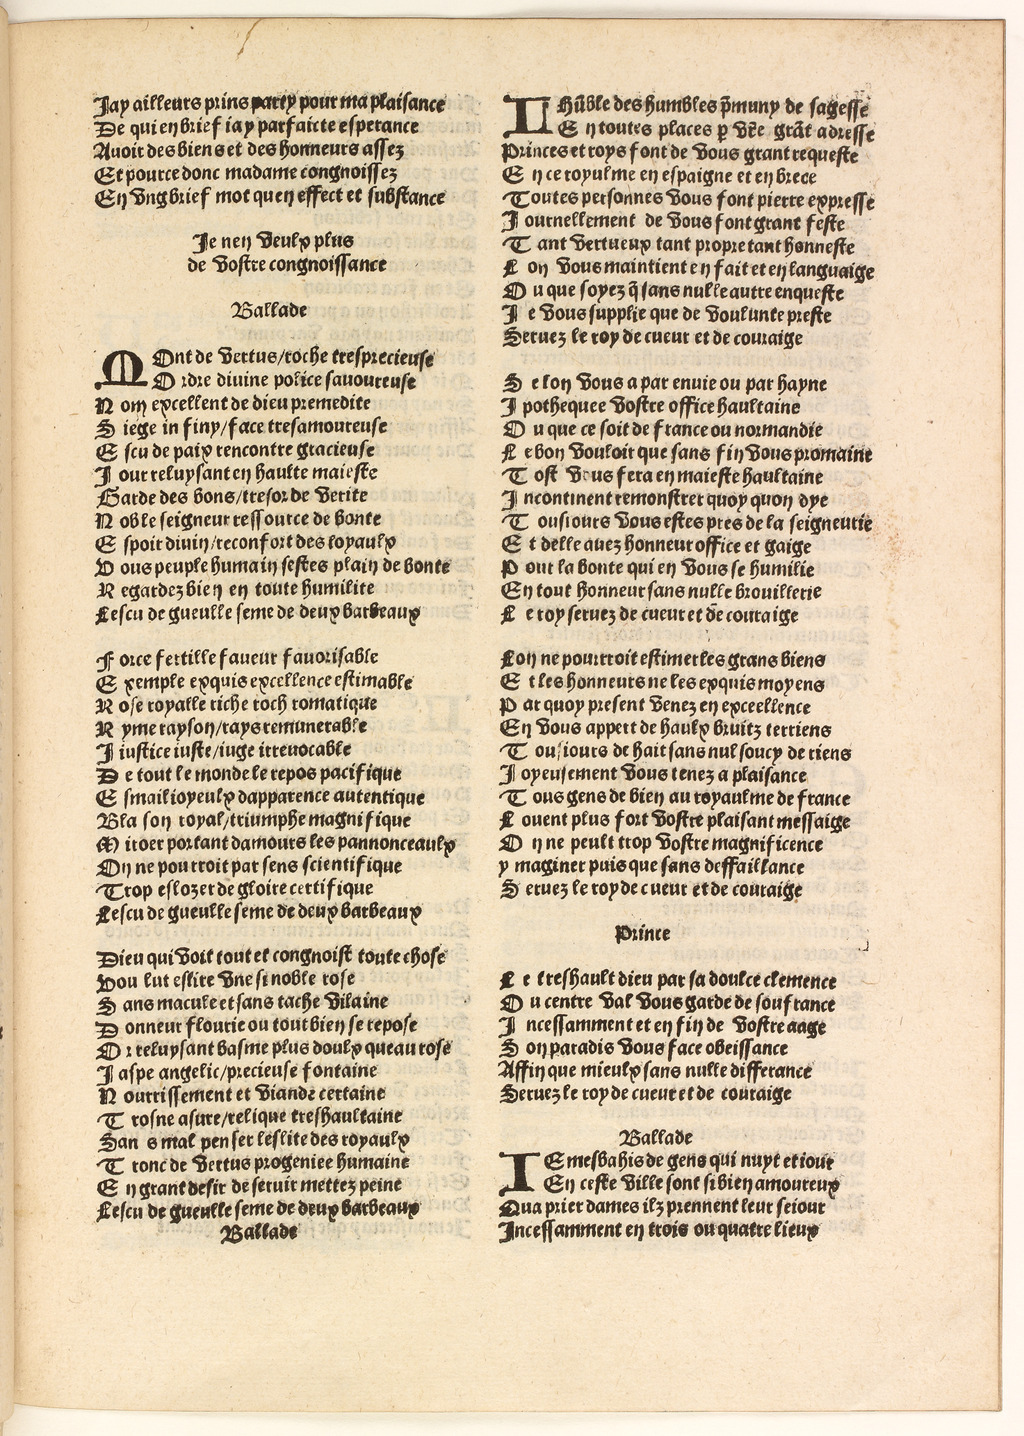 Jay ailleurs prins party pour ma plaisance
De qui en brief iay parfaicte esperance
Auoir des biens et des honneurs assez
Et pource donc madame congnoissez
En vng brief mot quen effect et substance
Je nen veulx plus
de vostre congnoissance
Ballade
MOnt de vertus/roche tresprecieuse
Ordre diuine police sauoureuse
Nom excellent de dieu premedite
Siege infiny/face tresamoureuse
Escu de paix rencontre gracieuse
Jour reluysant en haulte maieste
Garde des bons/tresor de verite
Noble seigneur ressource de bonte
Espoir diuin/reconfort des loyaulx
Vous peuple humain sestes plain de bonte
Regardez bien en toute humilite
Lescu de gueulle seme de deux barbeaux
Force fertille faueur fauorisable
Exemple exquis excellence estimable
Rose royalle riche roch romatique
Ryme rayson/rays remunerable
Iiustice iuste/iuge irreuocable
De tout le monde le repos pacifique
Esmail ioyeulx dapparence autentique
Blason royal/triumphe magnifique
Miroer portant damours les pannonceaulx
On ne pourroit par sens scientifique
Trop eslozer de gloire certifique
Lescu de gueulle seme de deux barbeaux
Dieu qui voit tout et congnoist toute chose
Voulut eslire vne si noble rose
Sans macule et sans tache vilaine
Donneur flourie ou tout bien se repose
Or reluysant basme plus doulx queau rose
Jaspe angelic/precieuse fontaine
Nourrissement et viande certaine
Trosne asure/relique treshaultaine
Sans mal penser leslite des royaulx
Tronc de vertus progeniee humaine
En grant desir de seruir mettez peine
Lescu de gueulle seme de deux barbeaux
Ballade
LHūble des humbles p̄muny de sagesse
En toutes places ꝑ vr̄e grāt adresse
Princes et roys font de vous grant requeste
En ce royulme en espaigne et en brece
Toutes personnes vous font pierre expresse
Journellement de vous font grant feste
Tant vertueux tant propre tant honneste
Lon vous maintient en fait et en languaige
Ou que soyez q̄ sans nulle autre enqueste
Je vous supplie que de voulunte preste
Seruez le roy de cueur et de couraige
Se lon vous a par enuie ou par hayne
Ipothequee vostre office haultaine
Ou que ce soit de france ou normandie
Le bon vouloir que sans fin vous promaine
Tost vous fera en maieste haultaine
Incontinent remonstrer quoy quon dye
Tousiours vous estes pres de la seigneurie
Et delle auez honneur office et gaige
Pour la bonte qui en vous se humilie
En tout honneur sans nulle brouillerie
Le roy seruez de cueur et de couraige
Lon ne pourroit estimer les grans biens
Et les honneurs ne les exquis moyens
Par quoy present venez en exceellence
En vous appert de haulx bruitz terriens
Tousiours de hait sans nul soucy de riens
Joyeusement vous tenez a plaisance
Tous gens de bien au royaulme de france
Louent plus fort vostre plaisant messaige
On ne peult trop vostre magnificence
ymaginer puis que sans deffaillance
Seruez le roy de cueur et de couraige
Prince
Le treshault dieu par sa doulce clemence
Ou centre val vous garde de souffrance
Incessamment et en fin de vostre aage
Son paradis vous face obeissance
Affin que mieulx sans nulle differance
Seruez le roy de cueur et de couraige
Ballade
IE mesbahis de gens qui nuyt et iour
En ceste ville sont si bien amoureux
Qua prier dames ilz prennent leur seiour
Incessamment en trois ou quatre lieux